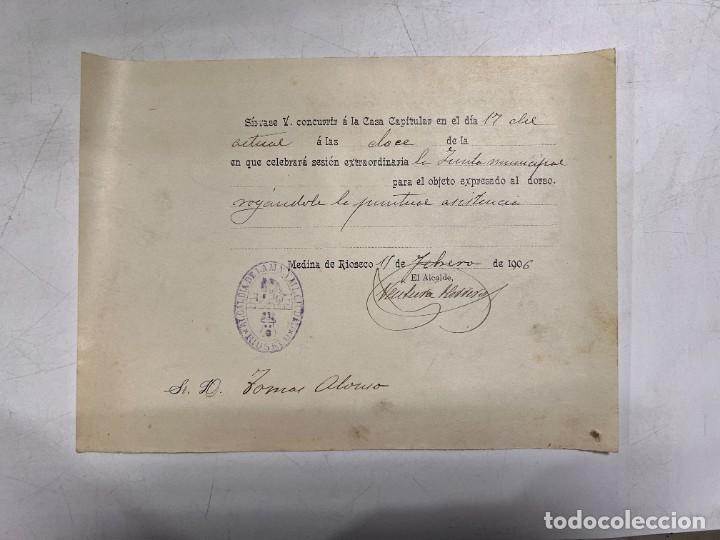 Sírvase V. concurrir á la Casa Capitular en el día 17 del
actual á las doce de la
en que celebrará sesión extraordinaria la Junta municipal
para el objeto expresado al dorso.
rogándole la puntual asistencia
Medina de Rioseco 15 de Febrero de 1906
El Alcalde,
Ventura
ALCALDIA DE LA RIOSECO
Sr. D. Tomas Alonso
todocoleccion
todocoleccion.net